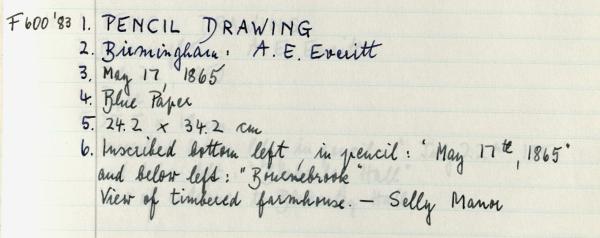 F600'83 1. PENCIL DRAWING
2. Birmingham: A. E. Everitt
3. May 17, 1865
4. Blue Paper
5. 24.2 x 34.2 cm
6. Inscribed bottom left, in pencil: "May 17th, 1865"
and below left: "Bournebrook"
View of timbered farmhouse. — Selly Manor